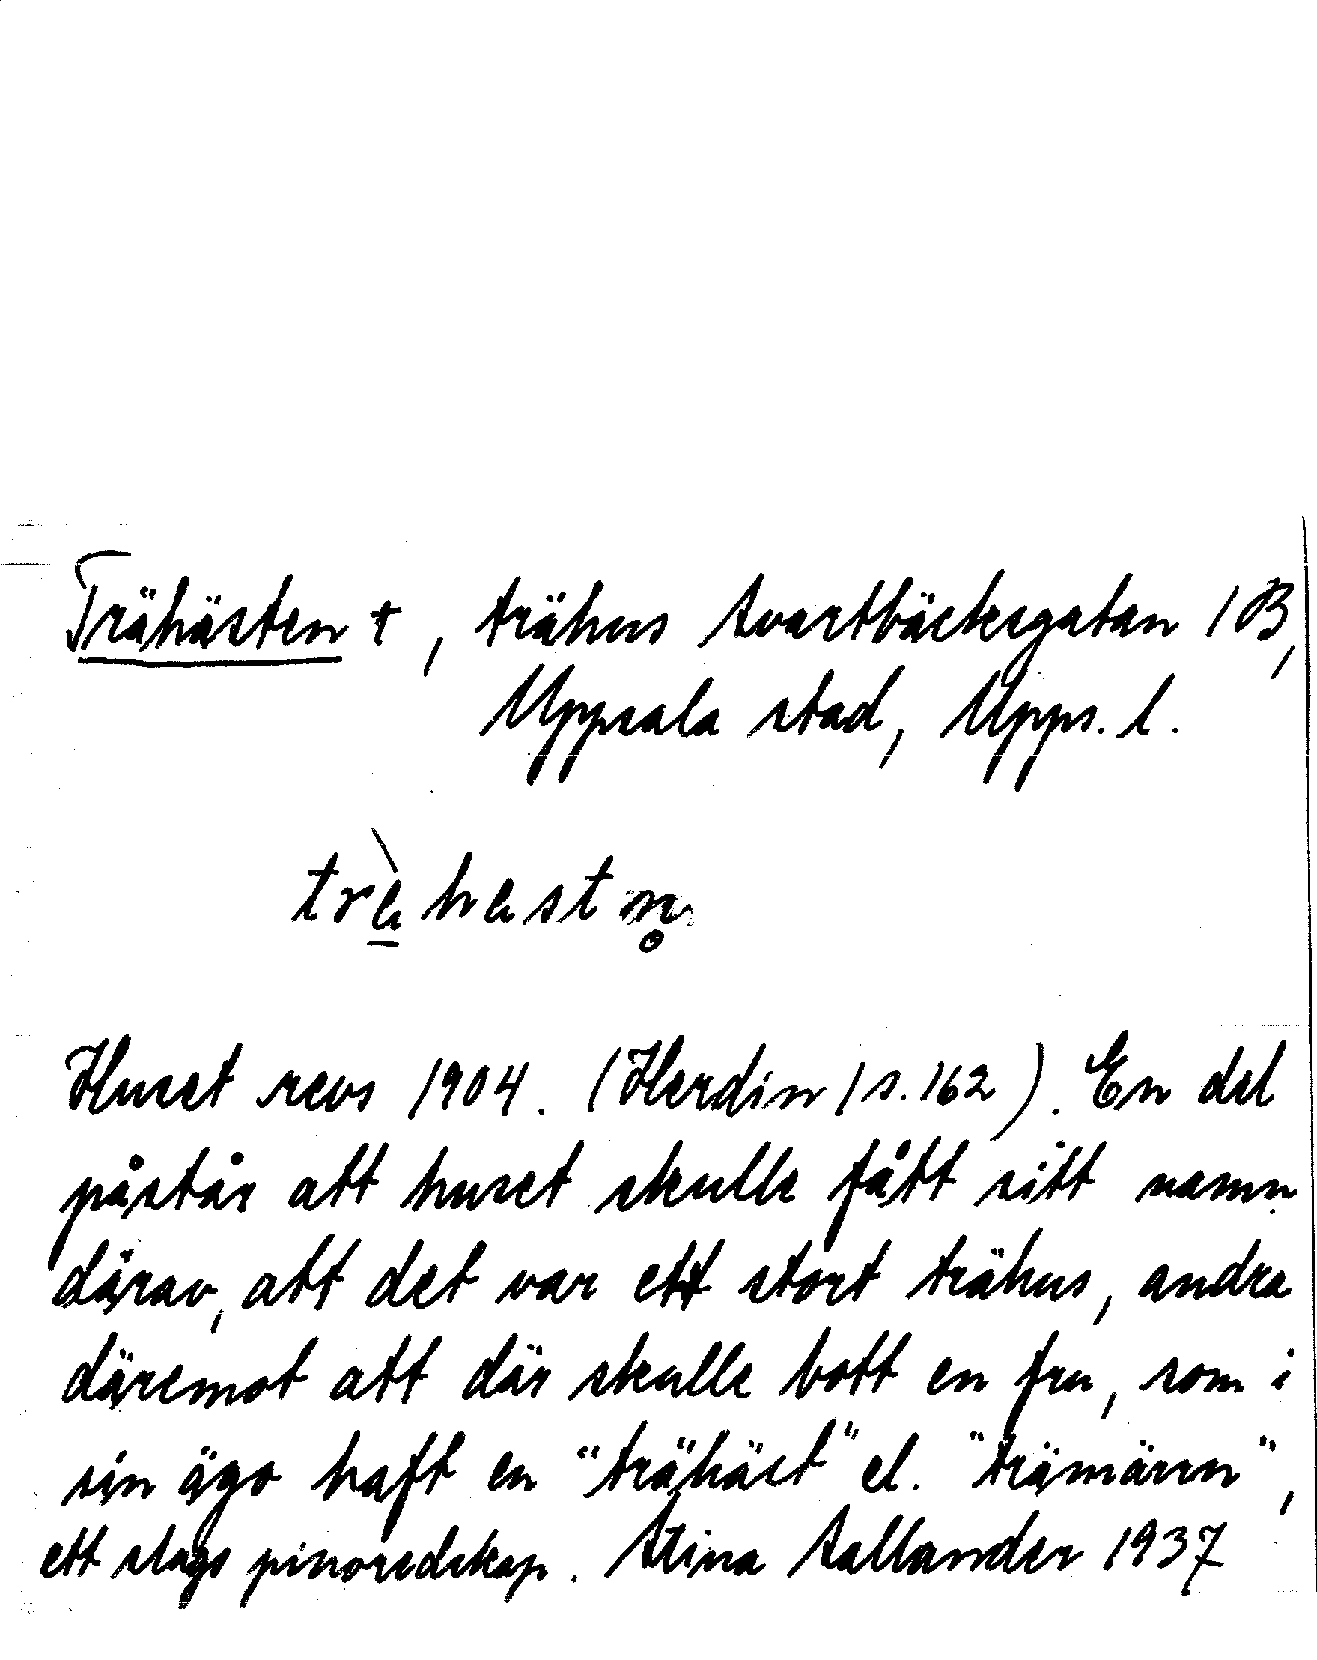 Trähästen †, trähus Svartbäcksgatan 1B,
Uppsala stad, Upps. l.
trähästn̥
Huset revs 1904. (Herdin 1 s. 162). En del
påstår att huset skulle fått sitt namn
därav, att det var ett stort trähus, andra
däremot att där skulle bott en fru, som i
sin ägo haft en "trähäst" el. "trämärrn",
ett slags pinoredskap. Stina Sallander 1937